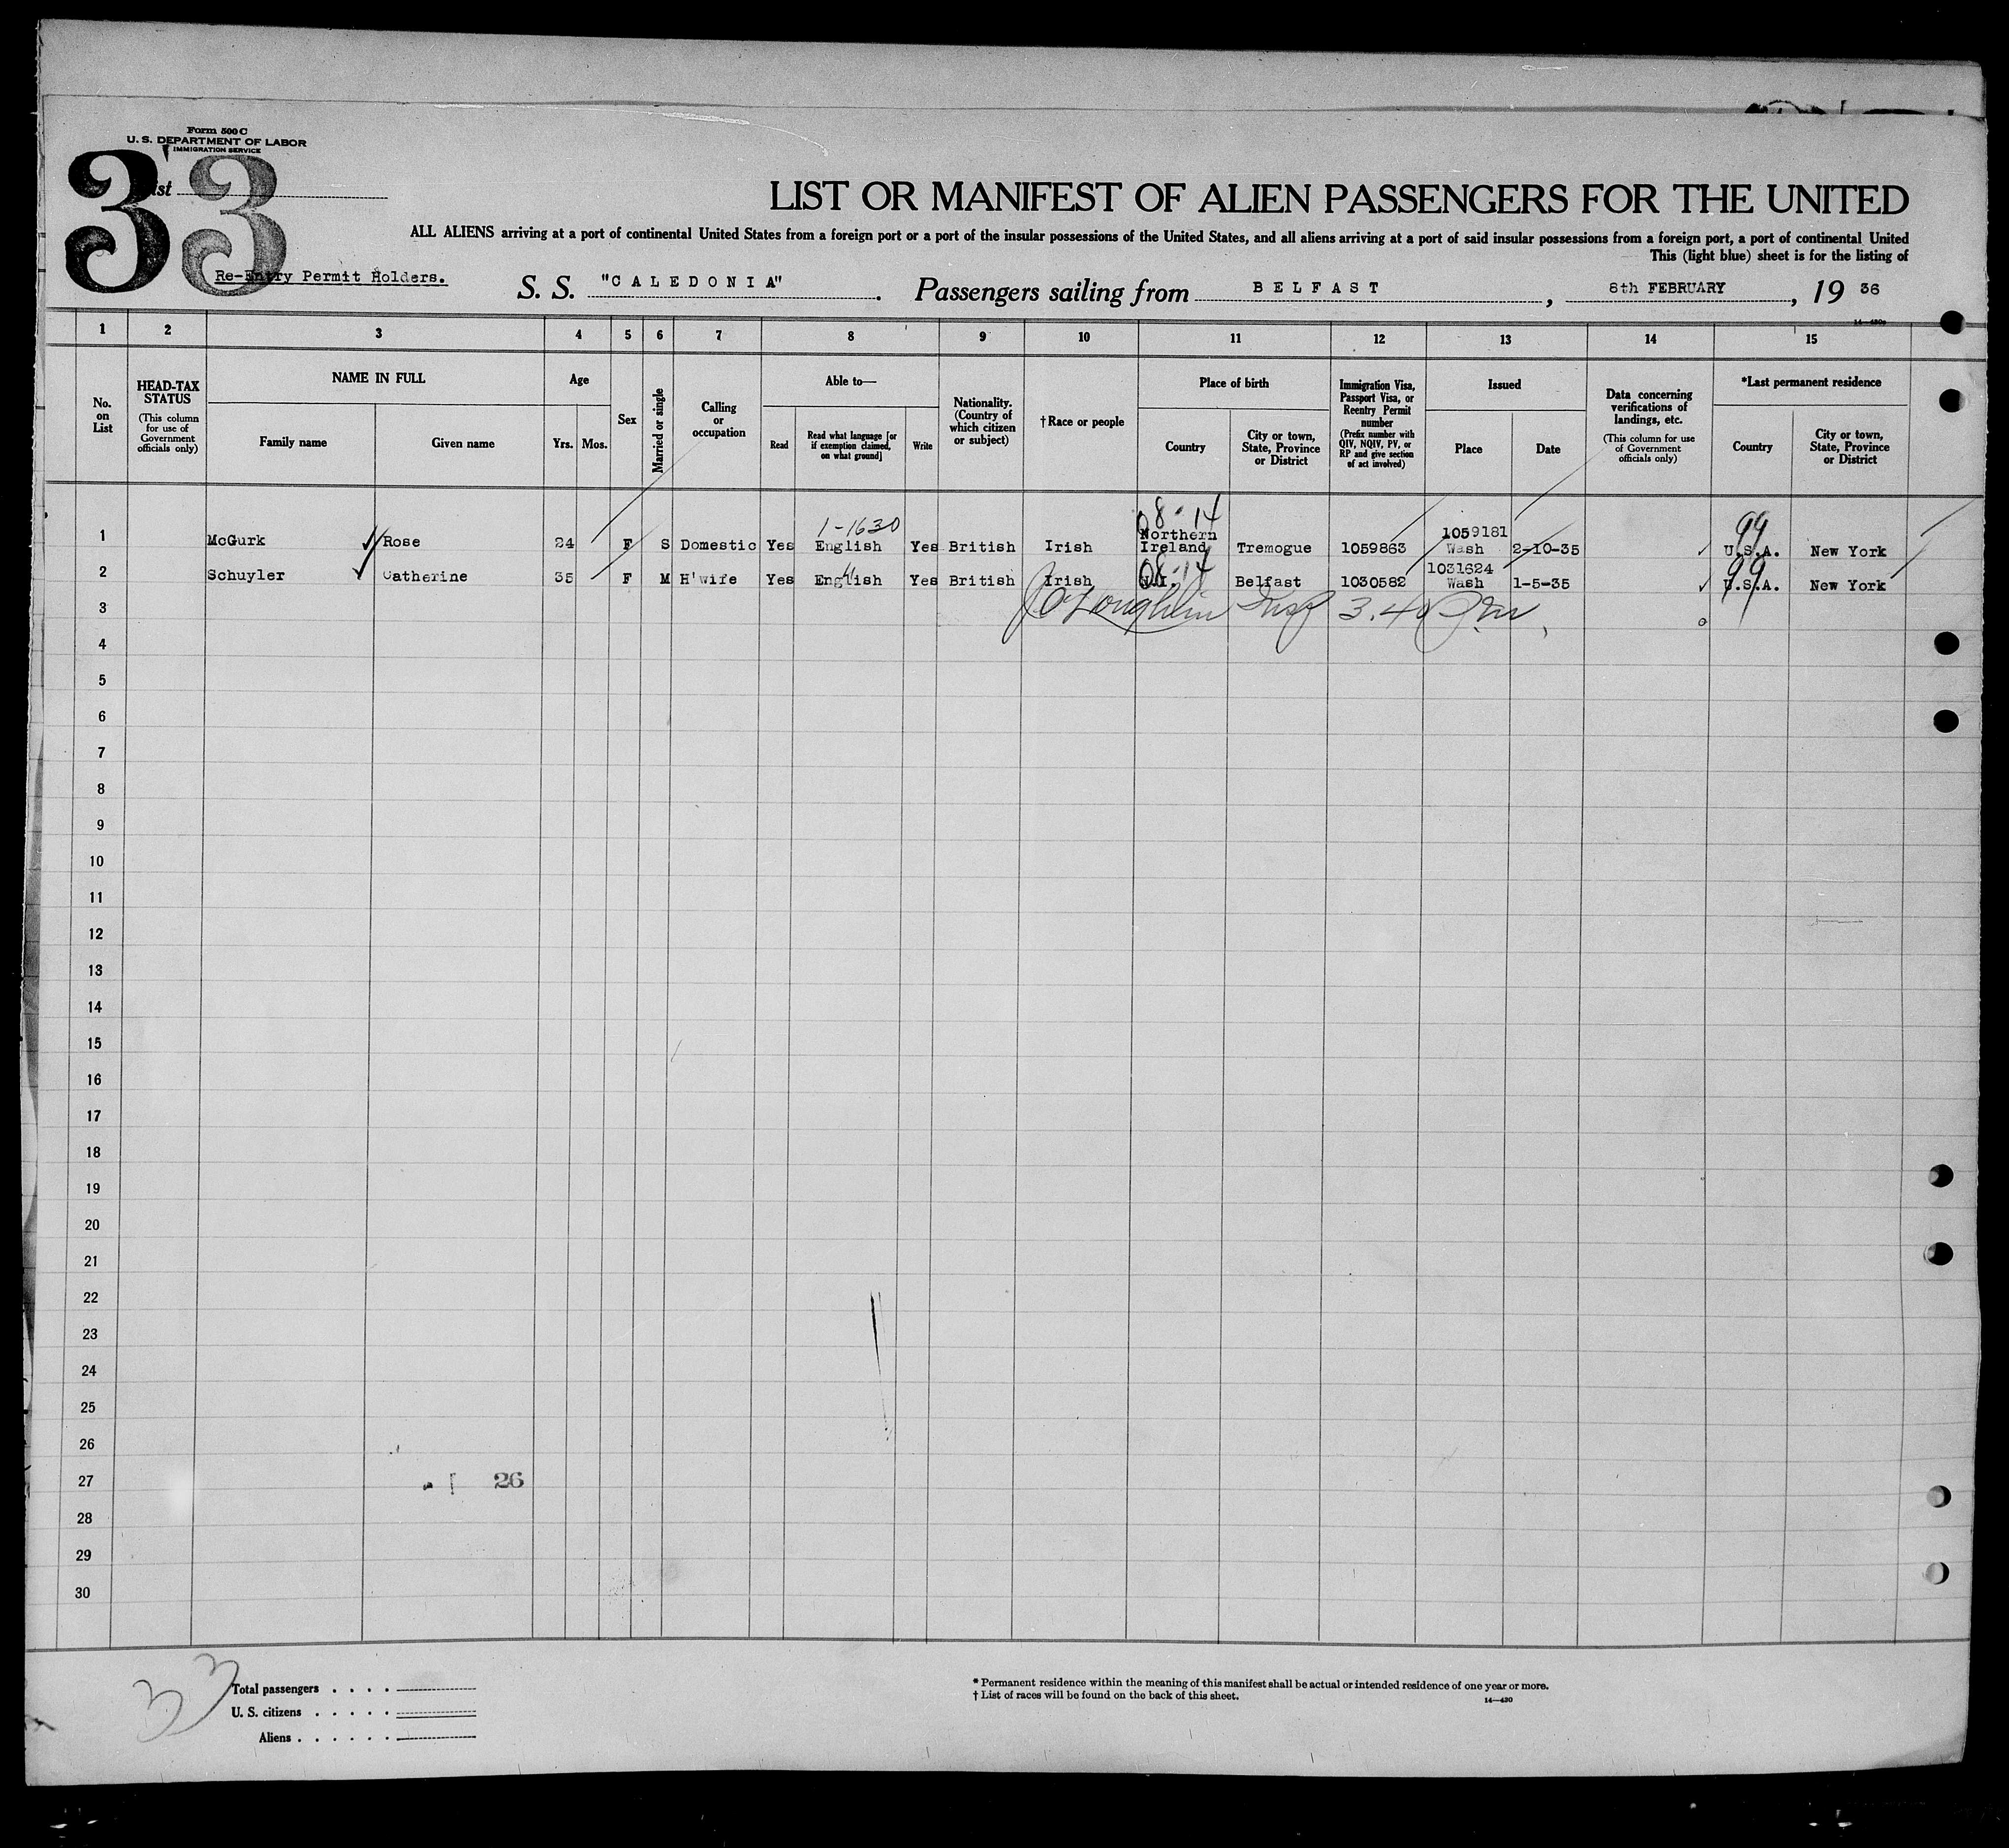 Form 500 C
U. S. DEPARTMENT OF LABOR
IMMIGRATION SERVICE
33
List
LIST OR MANIFEST OF ALIEN PASSENGERS FOR THE UNITED
ALL ALIENS arriving at a port of continental United States from a foreign port or a port of the insular possessions of the United States, and all aliens arriving at a port of said insular possessions from a foreign port, a port of continental United
This (light blue) sheet is for the listing of
Re-Entry Permit Holders.
S. S. "CALEDONIA". Passengers sailing from BELFAST, 8th FEBRUARY, 19 36
1 2 3 4 5 6 7 8 9 10 11 12 13 14 15
No. on List
HEAD-TAX STATUS
(This column for use of Government officials only)
NAME IN FULL
Family name
Given name
Age
Yrs. Mos.
Sex
Married or single
Calling or occupation
Able to—
Read
Read what language [or if exemption claimed, on what ground]
Write
Nationality. (Country of which citizen or subject)
†Race or people
Place of birth
Country
City or town, State, Province or District
Immigration Visa, Passport Visa, or Reentry Permit number
(Prefix number with QIV, NQIV, PV, or RP and give section of act involved)
Issued
Place
Date
Data concerning verifications of landings, etc.
(This column for use of Government officials only)
*Last permanent residence
Country
City or town, State, Province or District
1-1630
08-14
99
1059181
1 McGurk Rose 24 F S Domestic Yes English Yes British Irish Northern Ireland Tremogue 1059863 Wash 2-10-35 U.S.A. New York
08-14
99
1031624
2 Schuyler Catherine 35 F M H'wife Yes English Yes British Irish N.I. Belfast 1030582 Wash 1-5-35 U.S.A. New York
3
4
5
6
7
8
9
10
11
12
13
14
15
16
17
18
19
20
21
22
23
24
25
26
27 26
28
29
30
33
Total passengers . . . .
U. S. citizens . . . . .
Aliens . . . . . .
* Permanent residence within the meaning of this manifest shall be actual or intended residence of one year or more.
† List of races will be found on the back of this sheet.
14—430